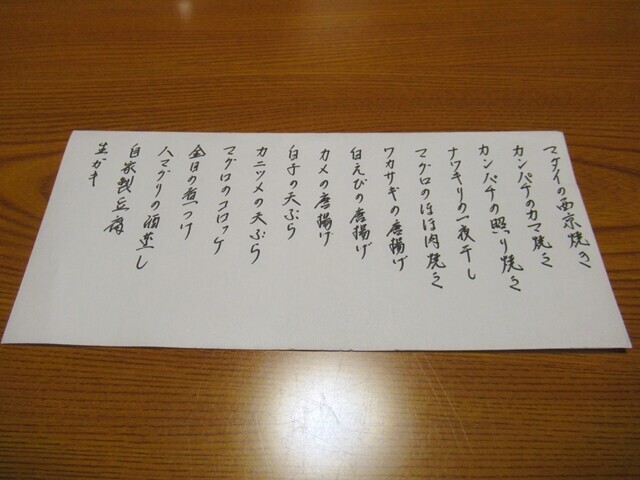 マダイの西京焼き
カンパチのカマ焼き
カンパチの照り焼き
ナワキリの一夜干し
マグロのほほ肉焼き
ワカサギの唐揚げ
白えびの唐揚げ
カメの唐揚げ
白子の天ぷら
カニツメの天ぷら
マグロのコロッケ
金目の煮つけ
ハマグリの酒蒸し
自家製豆腐
生ガキ